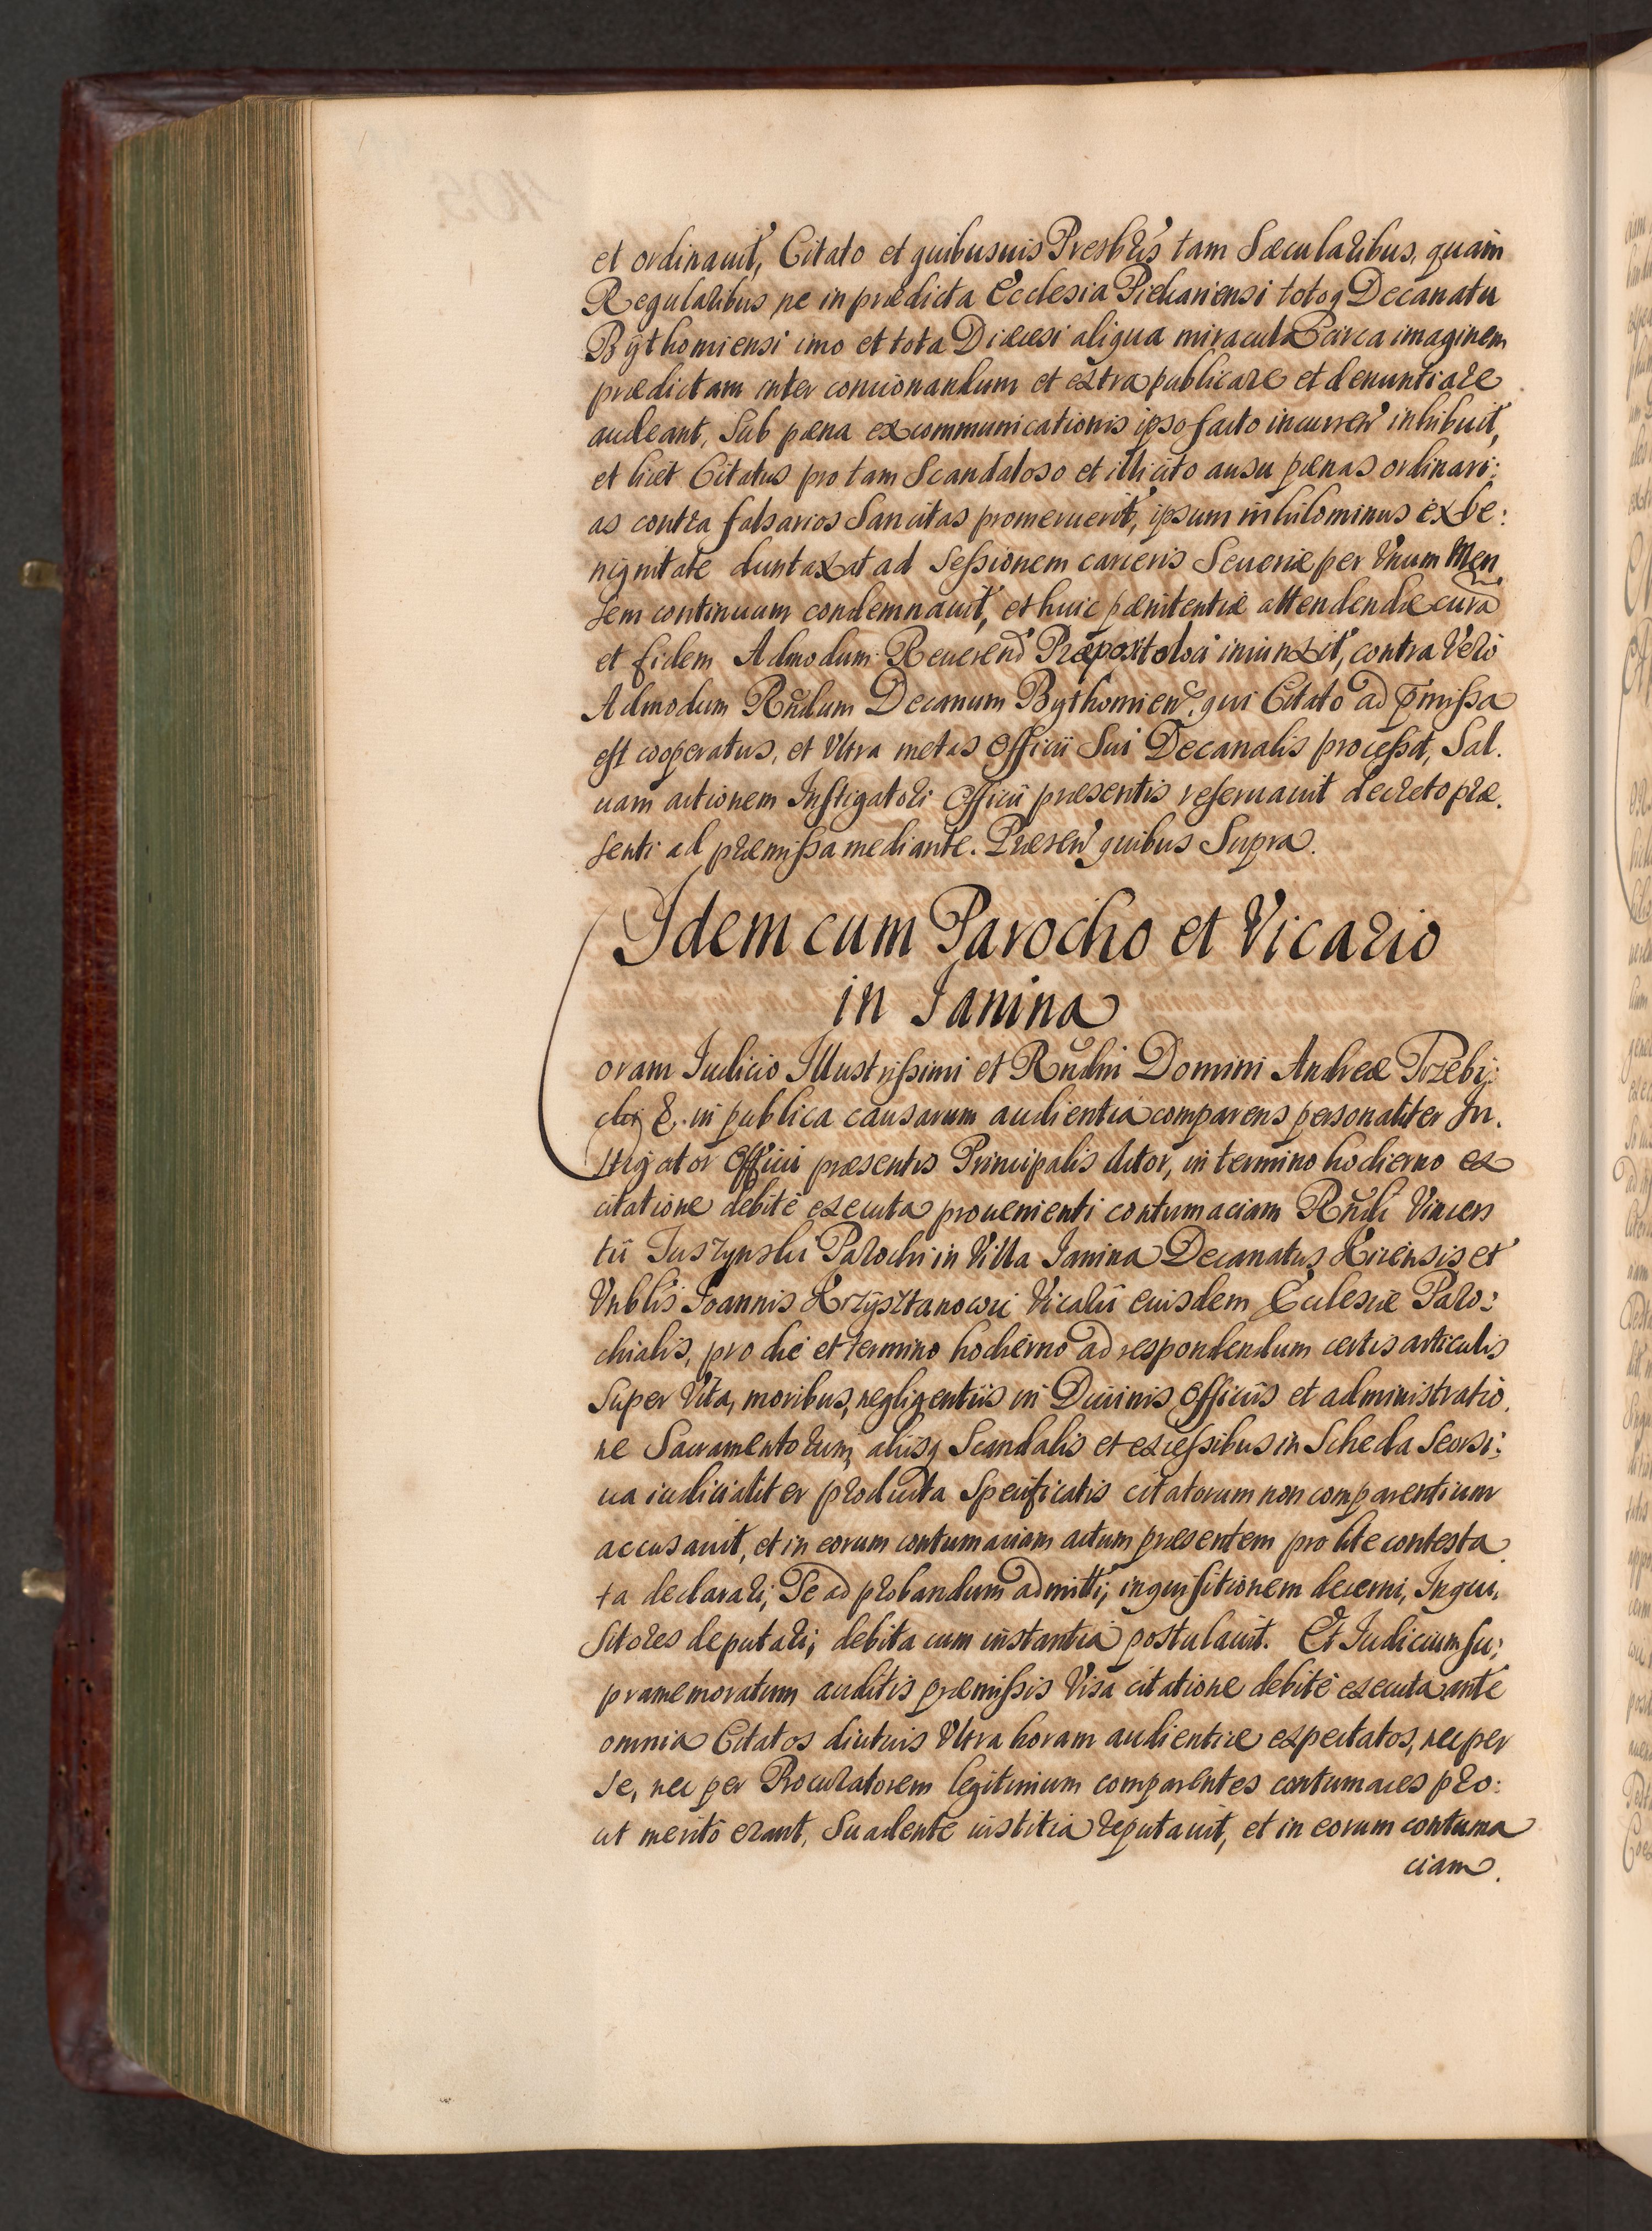 et ordinauit, Citato et quibusuis Presbris tam Sæcularibus, quam
Regularibus ne in prædicta Ecclesia Piekariensi totoq Decanatu
Bythomiensi imo et tota Diæcesi aliqua miracula circa imaginem
prædictam inter concionandum et extra publicare et denuntiare
audeant, Sub pæna excommunicationis ipso facto incurren inhibuit,
et licet Citatus pro tam Scandaloso et illicito ausu pænas ordinari:
as contra falsarios Sancitas promeruerit, ipsum nihilominus ex be:
nignitate duntaxat ad Sessionem carceris Seueriæ per Vnum Men
sem continuum condemnauit, et huic pænitentiæ attendendæ cura
et fidem Admodum Reuerend Præposito loci iniunxit, contra Vero
Admodum Rndum Decanum Bythomien. qui Citato ad pmissa
est cooperatus, et Vltra metas Officii Sui Decanalis processit, Sal.
uam actionem Instigatori Officii præsentis reseruauit decreto præ.
senti ad præmissa mediante. Præsen quibus Supra.
Idem cum Parocho et Vicario
in Janina
oram Iudicio Illustrissimi et Rndmi Domini Andreæ Trzebi:
cki &. in publica causarum audientia comparens personaliter In.
stigator Officii præsentis Principalis Actor, in termino hodierno ex
citatione debite executa prouenienti contumaciam Rndi Vincen
tii Juszynski Parochi in Villa Janina Decanatus Kijensis et
Vnblis Joannis Krzysztanowic Vicarii eiusdem Ecclesiæ Paro:
chialis, pro die et termino hodierno ad respondendum certis articulis
Super Vita, moribus, negligentiis in Diuinis Officiis et administratio.
ne Sacramentorum, aliisq Scandalis et excessibus in Scheda Seorsi:
ua iudicialiter producta Specificatis citatorum non comparentium
accusauit, et in eorum contumaciam actum præsentem pro lite contesta
ta declarari, Se ad probandum admitti, inquisitionem decerni, Inqui.
sitores deputari; debita cum instantia postulauit. Et Iudicium su:
pramemoratum auditis præmissis Visa citatione debite executa ante
omnia Citatos diutius Vltra horam audientiæ expectatos, nec per
se, nec per Procuratorem legitimum comparentes contumaces pro:
ut merito erant, Suadente iustitia reputauit, et in eorum contuma
ciam.